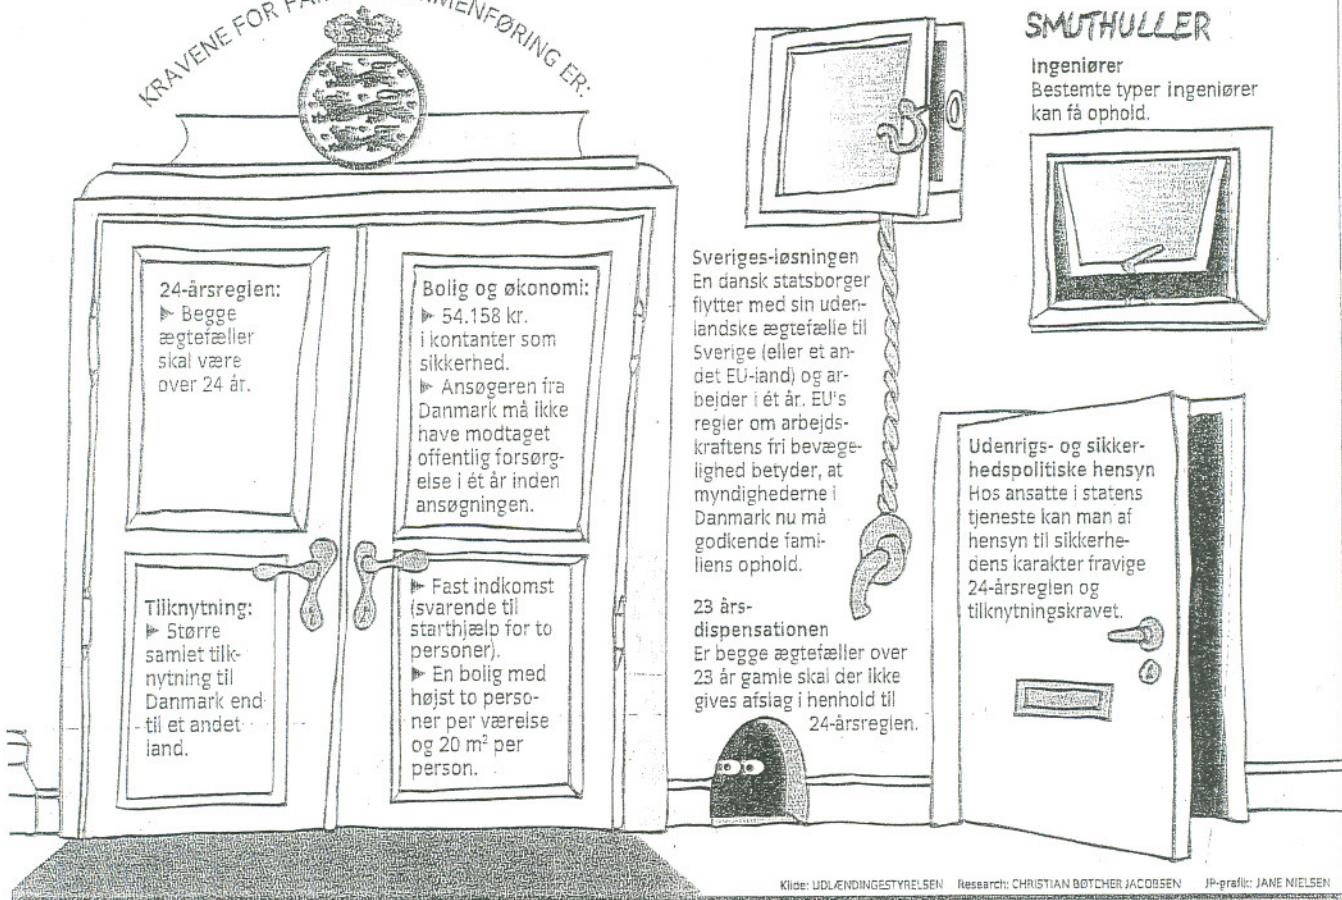 KRAVENE FOR
ØRING ER:
24-årsreglen:
▶ Begge
ægtefæller
skal være
over 24 år.
Tilknytning:
▶ Større
samlet tilk-
nytning til
Danmark end
til et andet
land.
Bolig og økonomi:
▶ 54.158 kr.
i kontanter som
sikkerhed.
▶ Ansøgeren fra
Danmark må ikke
have modtaget
offentlig forsørg-
else i ét år inden
ansøgningen.
▶ Fast indkomst
(svarende til
starthjælp for to
personer).
▶ En bolig med
højst to perso-
ner per værelse
og 20 m² per
person.
Sveriges-løsningen
En dansk statsborger
flytter med sin uden-
landske ægtefælle til
Sverige (eller et an-
det EU-land) og ar-
bejder i ét år. EU's
regler om arbejds-
kraftens fri bevæge-
lighed betyder, at
myndighederne i
Danmark nu må
godkende fami-
liens ophold.
23 års-
dispensationen
Er begge ægtefæller over
23 år gamle skal der ikke
gives afslag i henhold til
24-årsreglen.
SMUTHULLER
Ingeniører
Bestemte typer ingeniører
kan få ophold.
Udenrigs- og sikker-
hedspolitiske hensyn
Hos ansatte i statens
tjeneste kan man af
hensyn til sikkerhe-
dens karakter fravige
24-årsreglen og
tilknytningskravet.
Kilde: UDLÆNDINGESTYRELSEN Research: CHRISTIAN BØTCHER JACOBSEN JP-grafik: JANE NIELSEN